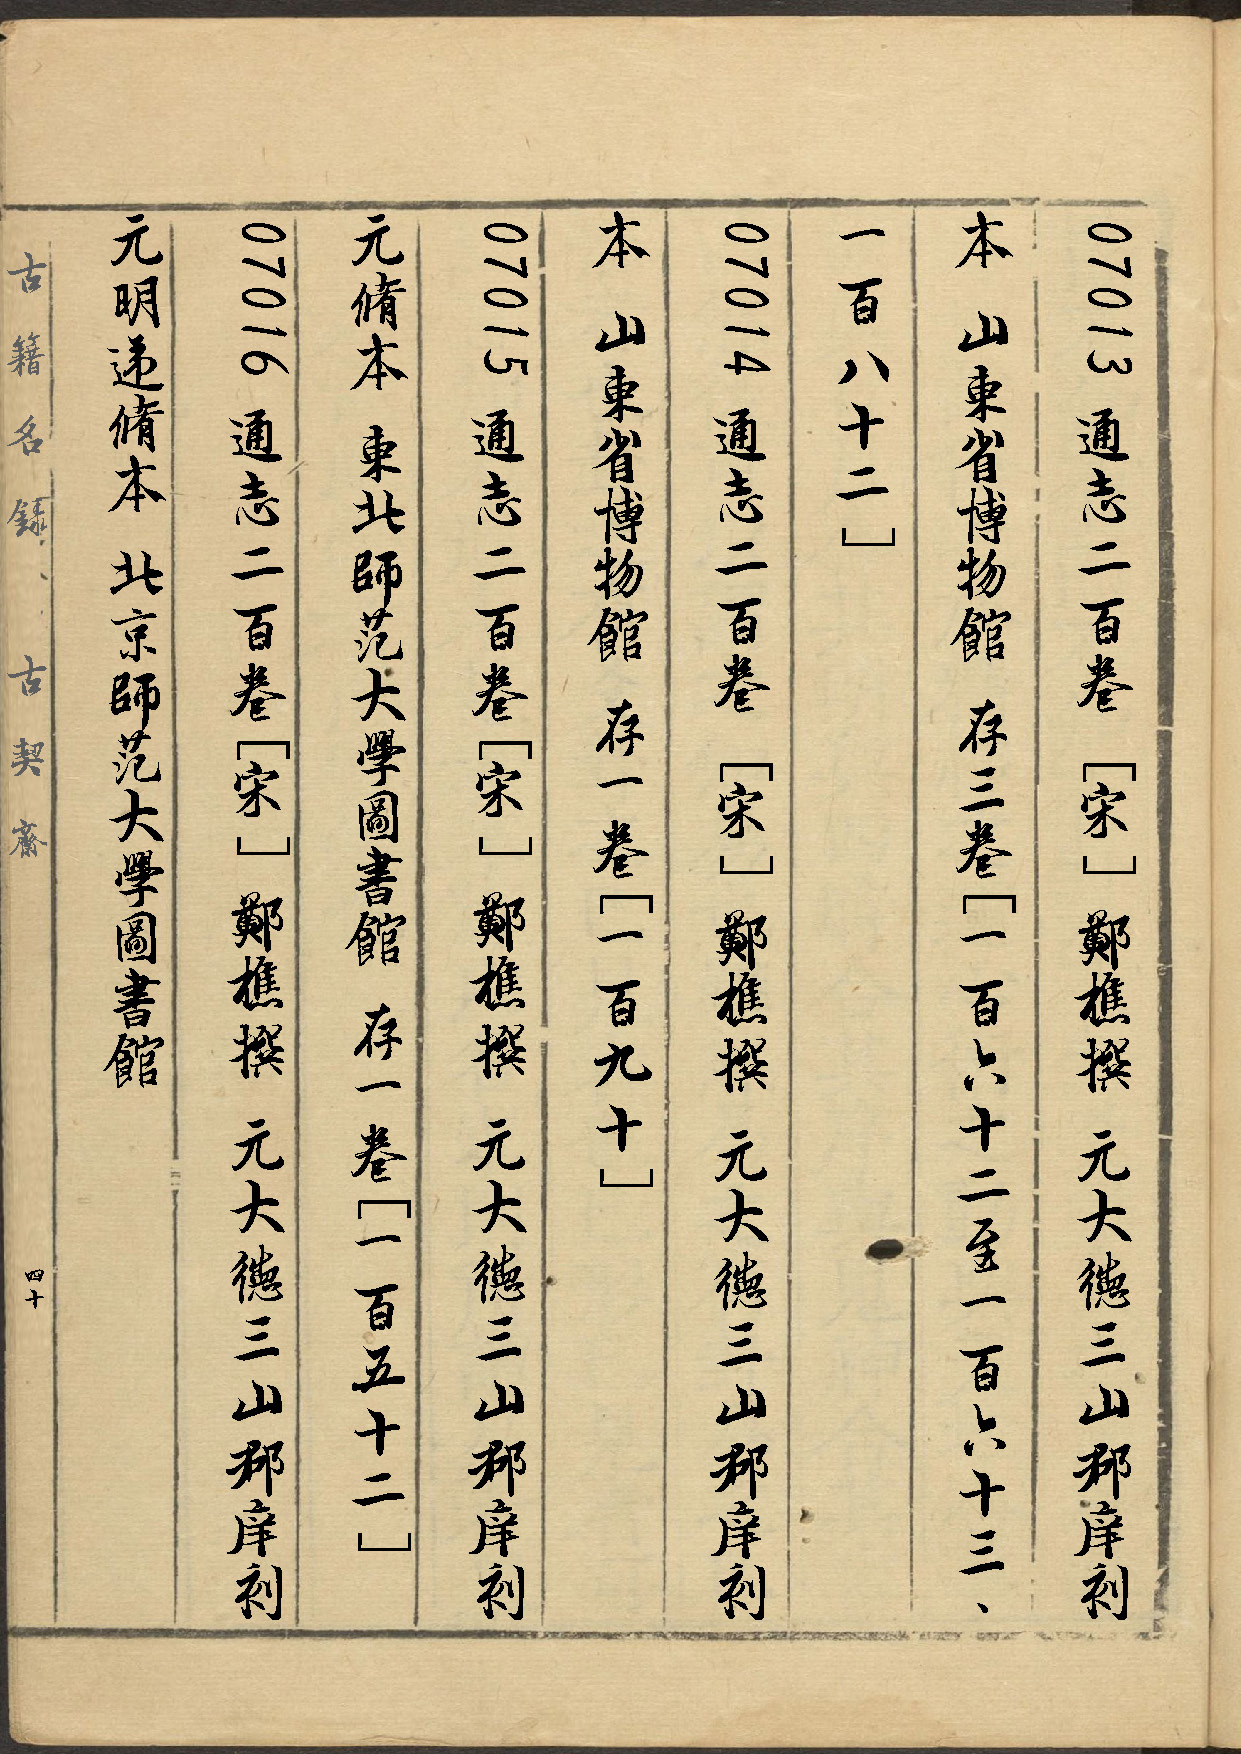 07013 通志二百卷 [宋] 鄭樵撰 元大德三山郡庠刻
本 山東省博物館 存三卷[一百六十二至一百六十三、
一百八十二]
07014 通志二百卷 [宋] 鄭樵撰 元大德三山郡庠刻
本 山東省博物館 存一卷[一百九十]
07015 通志二百卷[宋] 鄭樵撰 元大德三山郡庠刻
元脩本 東北師范大學圖書館 存一卷[一百五十二]
07016 通志二百卷[宋] 鄭樵撰 元大德三山郡庠刻
元明递脩本 北京師范大學圖書館
古籍名録·、·古契齋
四十